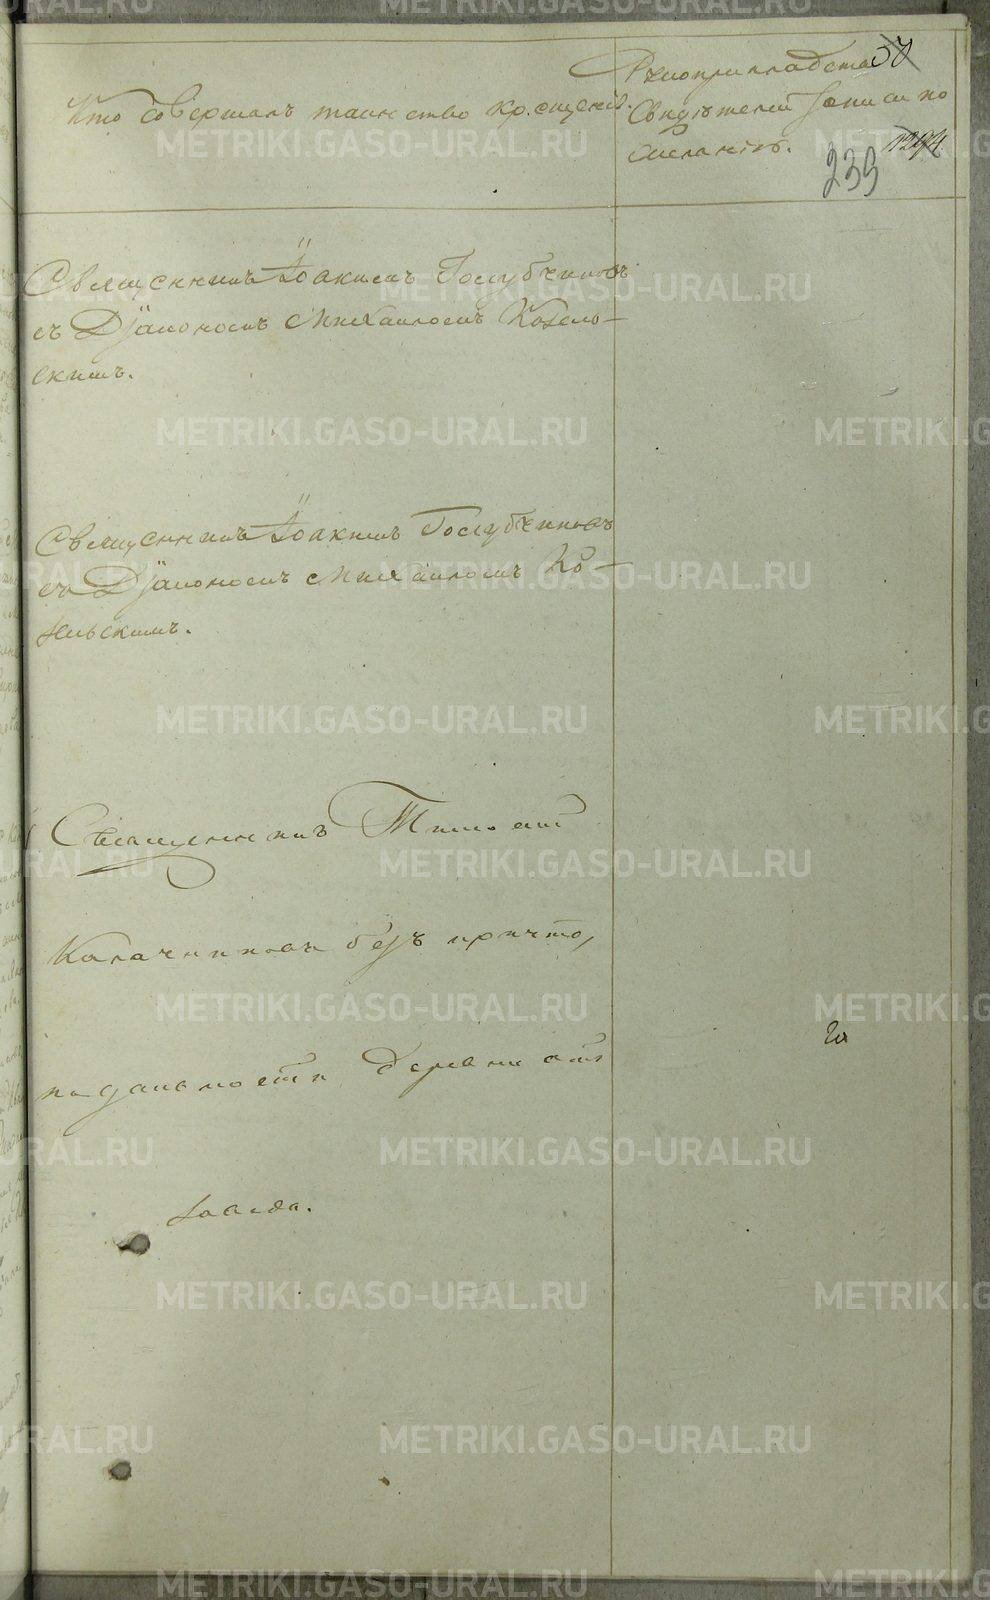 Кто совершалъ таинство крещенія.
Рукоприкладство
свидѣтелей записи по
желанію.
57
1294
239
Священникъ Іоакимъ Голубчиковъ
съ Діакономъ Михаиломъ
скимъ.
Священникъ Іоакимъ Голубчиковъ
съ Діакономъ Михаиломъ Ко-
зельскимъ.
Священникъ Тимофей
Калачниковъ безъ причта,
по дальности деревни отъ
завода.
METRIKI.GASO-URAL.RU